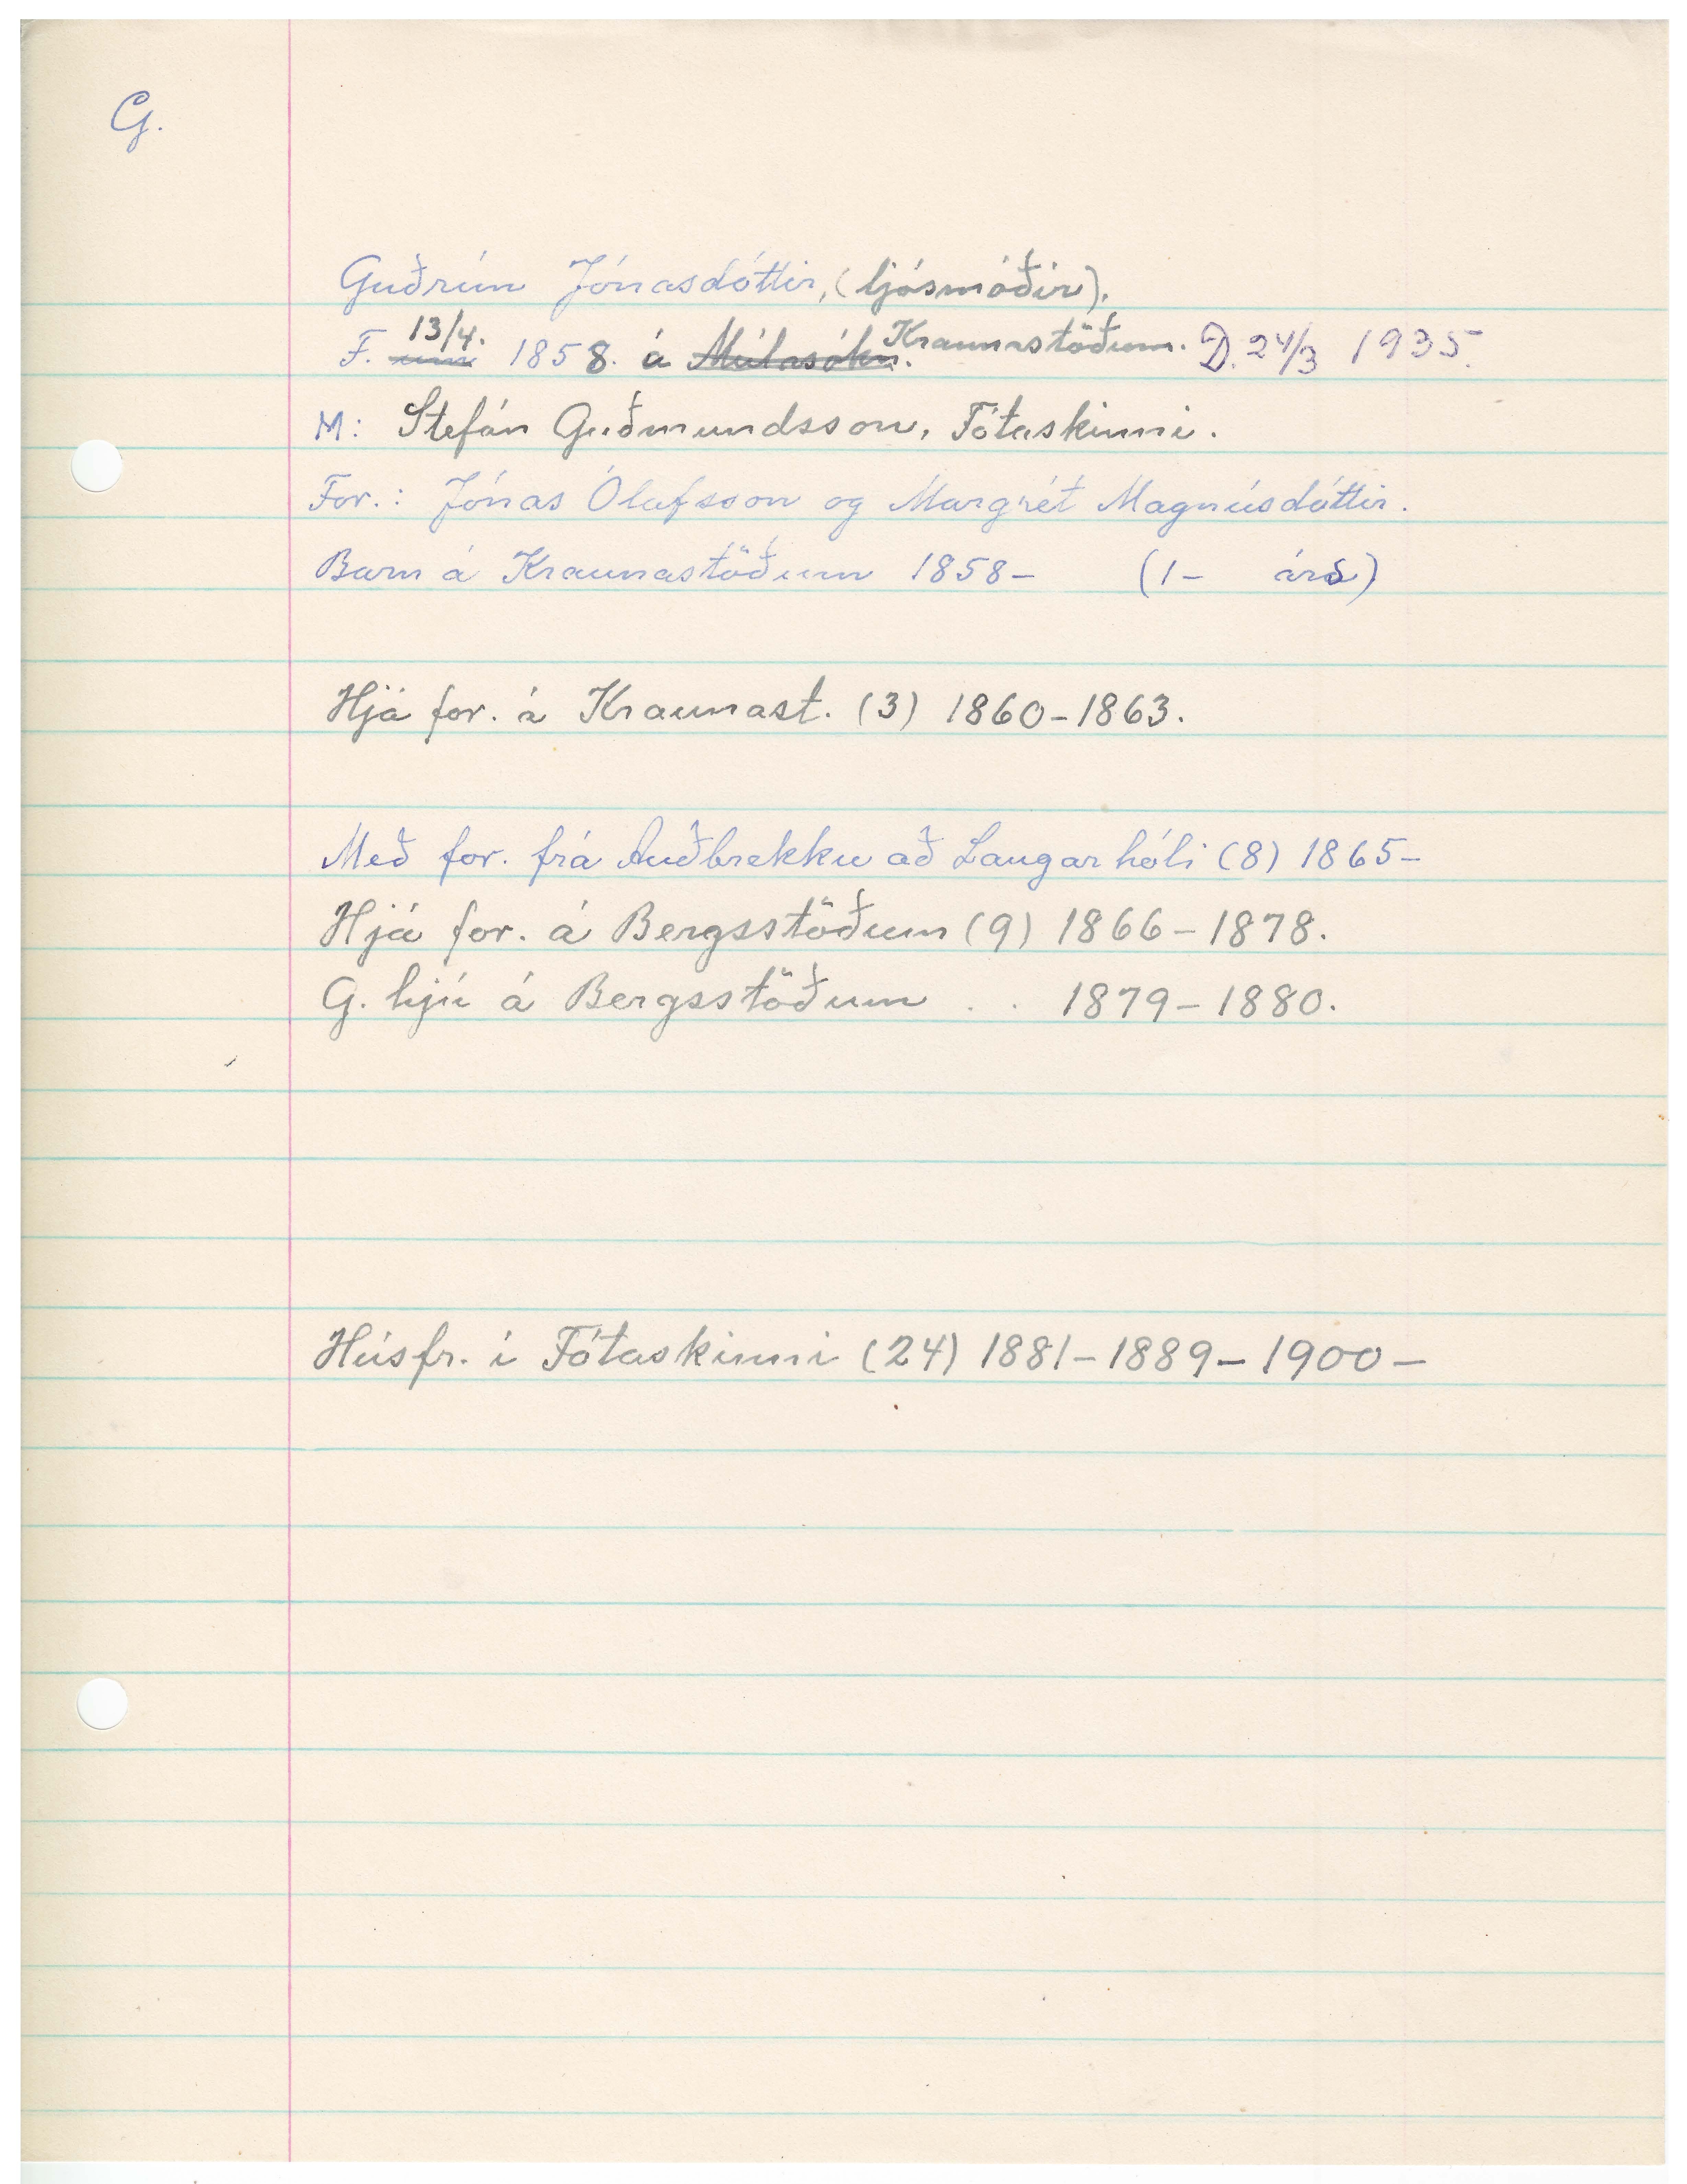 G.
Guðrún Jónasdóttir, (ljósmóðir).
F. 13/4. 1858. á Múlasókn. Kraunastöðum. D. 24/3 1935.
M: Stefán Guðmundsson, Fótaskinni.
For.: Jónas Ólafsson og Margrét Magnúsdóttir.
Barn á Kraunastöðum 1858- (1- árs)
Hjá for. á Kraunast. (3) 1860-1863.
Með for. frá Auðbrekku að Langarhóli (8) 1865-
Hjá for. á Bergsstöðum (9) 1866-1878.
G. hjú á Bergsstöðum . . 1879-1880.
Húsfr. í Fótaskinni (24) 1881-1889-1900-